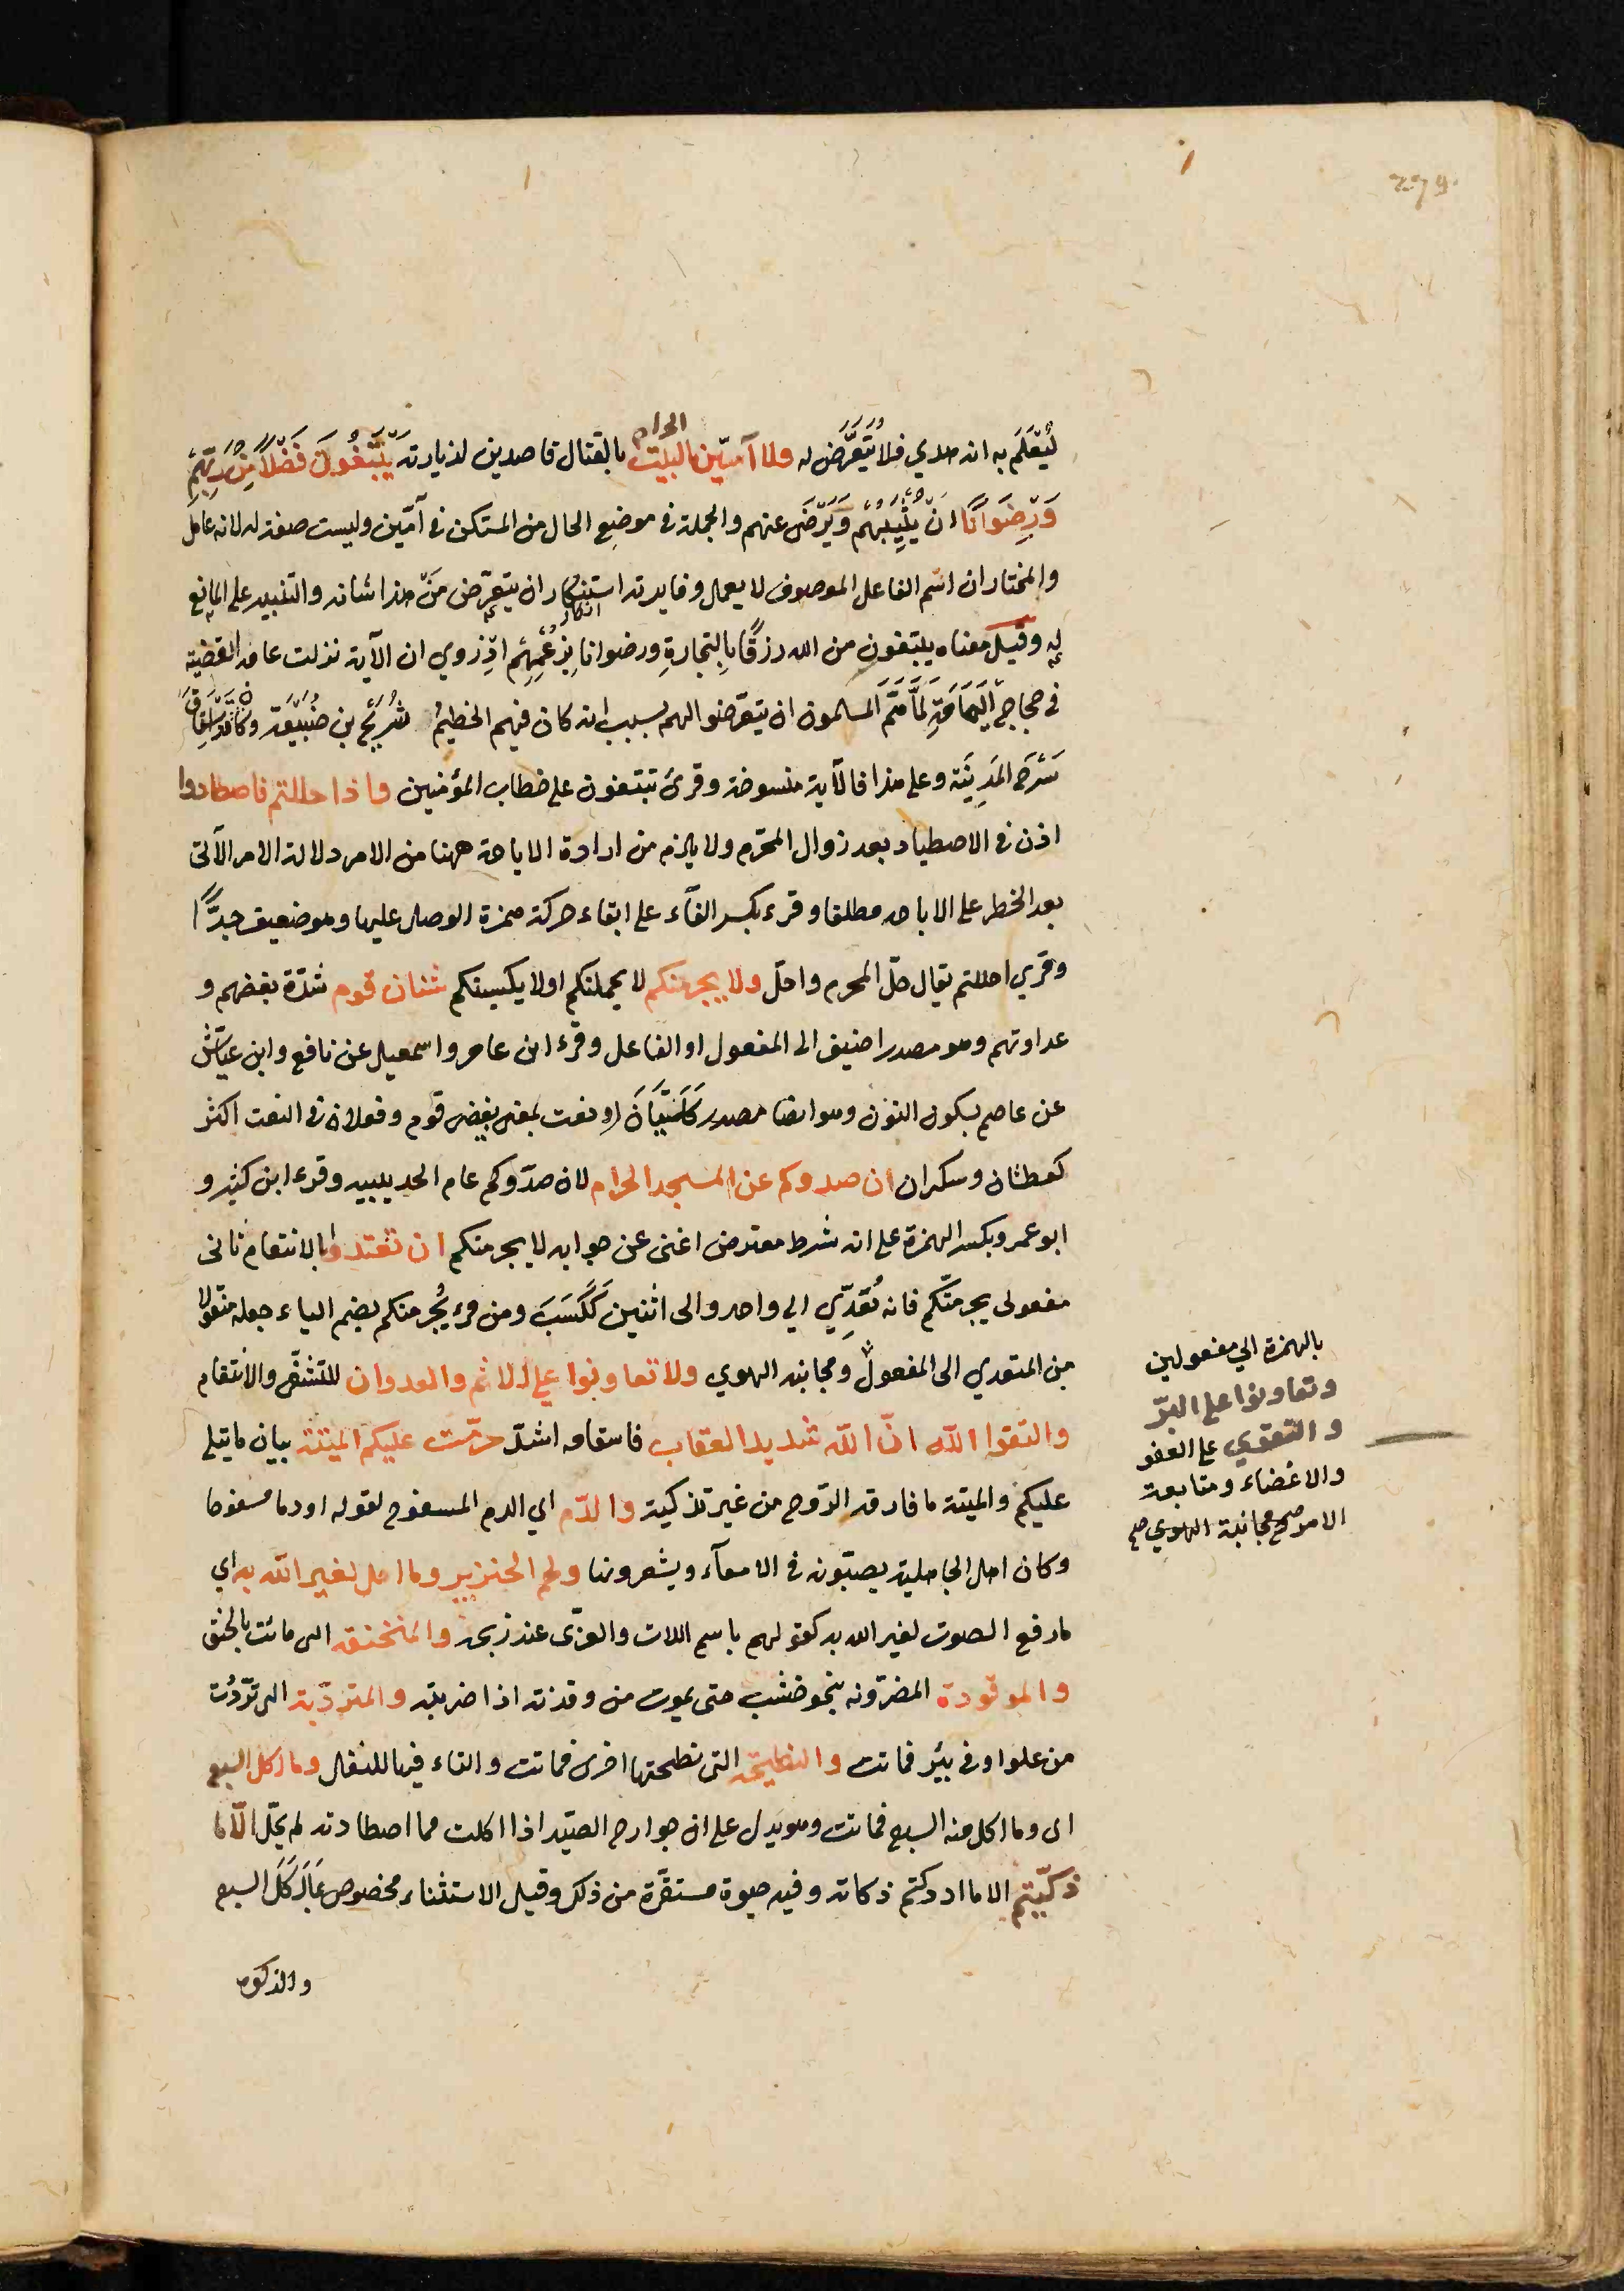 279.
لِيُعْلَمَ به انه هدي فلا يُتَعَرَّضَ له ولا آمّين البيت الحرام بالقتال قاصدين لزيارته يَبْتَغُونَ فَضْلًا مِنْ رَبِّهِمْ
وَرِضْوَانًا انْ يُثِيبَهُمْ وَيَرْضَى عنهم والجملة في موضع الحال من المستكن في آمّين وليست صفة له لانه عامل
والمختار ان اسم الفاعل الموصوف لا يعمل وفايدته استنكار ان يتعرّض مَنْ هذا شانه والتنبيه على المانع
انكار
له وقيل معناه يبتغون من الله رزقًا بالتجارةِ ورضوانا بزعْمِهِمْ اذ روي ان الآية نزلت عام القضية
في حجاج الْيَمَامَةِ لَمَّا هَمَّ المسلمون ان يتعرّضوا لهم بسبب انه كان فيهم الحطيمُ شُرَيْحُ بن ضُبَيْعَة وكان قد اسْتَاقَ
سَرْحَ المَدِينَة وعلى هذا فالآية منسوخة وقرئ تبتغون على خطاب المؤمنين واذا حللتم فاصطادوا
اذن في الاصطياد بعد زوال المحرّم ولا يلزم من ارادة الاباحة ههنا من الامر دلالة الامر الآتى
بعد الحظر على الاباحه مطلقا وقرء بكسر الفآء على ابقاء حركة همزة الوصل عليها وهو ضعيف جدًّا
وقري احللتم يقال حلّ المحرم واحلّ ولا يجرمنكم لا يحملنكم او لا يكسبنكم شنان قوم شدّة بغضهم و
عداوتهم وهو مصدر اضيف الى المفعول او الفاعل وقرء ابن عامر واسمعيل عن نافع وابن عيّاش
عن عاصم بسكون النون وهو ايضا مصدر كَلَيَّانَ او نعت بمعنى بغيض قوم وفعلان في النعت اكثر
كعطشان وسكران ان صدوكم عن المسجد الحرام لان صدّوكم عام الحديبيه وقرء ابن كثير و
ابو عمرو بكسر الهمزة على انه شرط معترض اغنى عن جوابه لا يجرمنكم ان تعتدوا بالانتقام ثانى
مفعولى يجرمنّكم فانه يُعَدِّي الي واحد والى اثنين كَكَسَبَ ومن قرء يُجرمنكم بضم الياء جعله منقولا
من المتعدي الى المفعول ومجانبه الهوي ولا تعاونوا علي الاثم والعدوان للتشفّي والانتقام
بالهمزة الي مفعولين
وتعاونوا على البرّ
والتقوي على العفو
والاغضاء ومتابعة
الامر صح ومجانبة الهوي صح
واتقوا الله انّ الله شديد العقاب فانتقامه اشدّ حرّمت عليكم الميتة بيان ما يتلي
عليكم والميتة ما فارقه الرّوح من غير تذكية والدّم اي الدم المسفوح لقوله او دما مسفوحا
وكان اهل الجاهلية يصبّونه في الامعآء ويشوونها ولحم الخنزير وما اهل لغير الله به اي
ما رفع الصوت لغير الله به كقولهم باسم اللات والعزّى عند ذبحه والمنخنقه التى ماتت بالخنق
والموقوذة المضروبه بنحو خشب حتى يموت من وقذته اذا ضربته والمتردّية التى تردّت
من علو او في بئر فماتت والنطيحة التى نطحتها اخرى فماتت والتاء فيها للنقل وما اكل السبع
اى وما اكل منه السبع فماتت وهو يدل على ان جوارح الصيّد اذا اكلت مما اصطادته لم يحلّ الّا ما
ذكّيتم الا ما ادركتم ذكاته وفيه حيوة مستقرّة من ذلك وقيل الاستثناء مخصوص بمَا اَكَلَ السبع
والذكوه